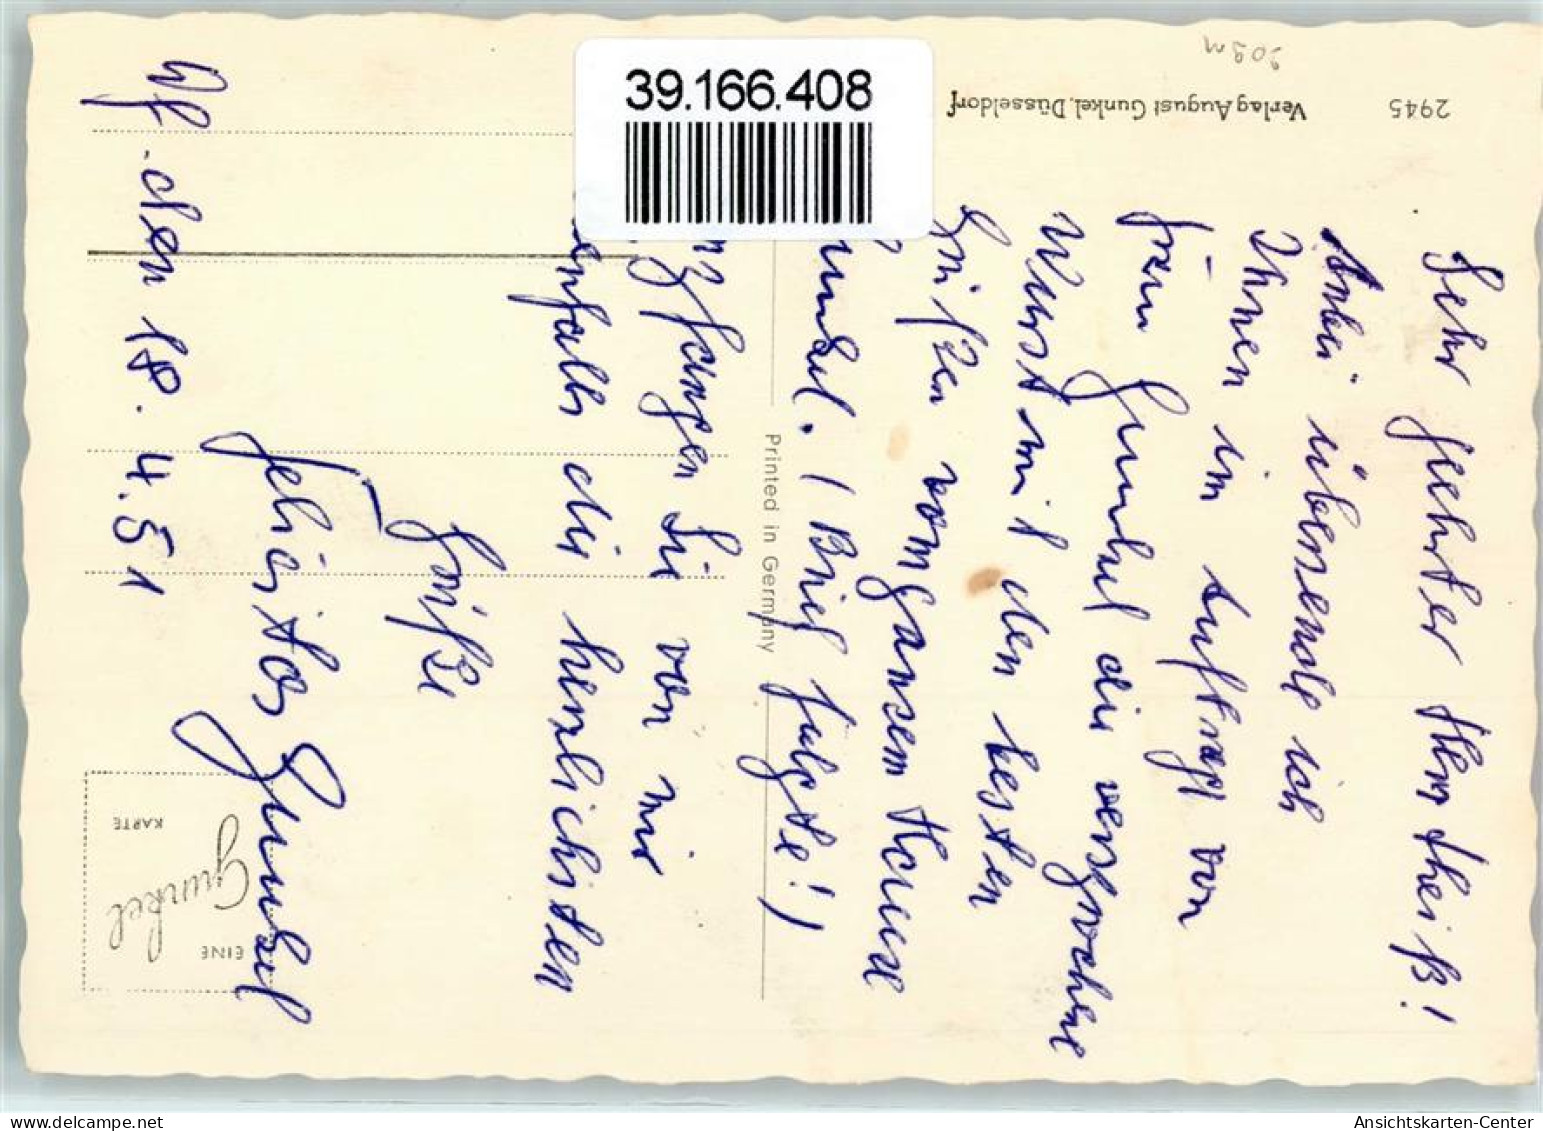 Df. den 18. 4. 51
Sehr geehrter Herr Theiß!
Anbei übersende ich
Ihnen im Auftrage von
Frau Gunkel die versprochene
Wurst mit den besten
Grüßen vom ganzen Hause
unkel. (Brief folgte!)
pfangen Sie von mir
enfalls die herzlichsten
Grüße
Felicitas Gunkel
39.166.408
2945 Verlag August Gunkel, Düsseldorf
Printed in Germany
EINE
Gunkel
KARTE
delcampe.net
Ansichtskarten-Center